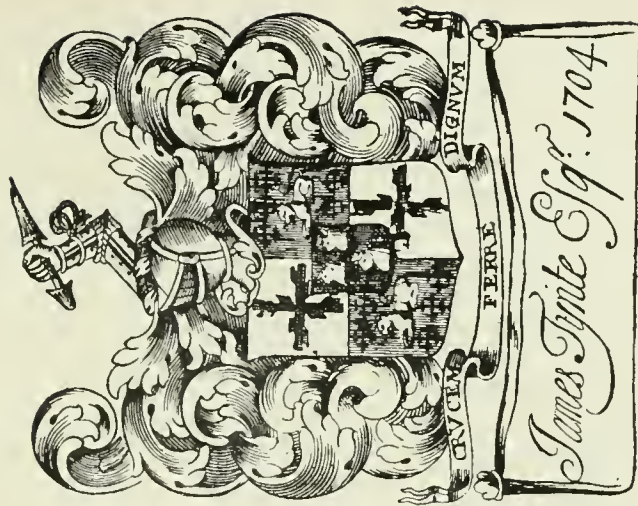 CRVCEM FERRE DIGNVM
James Tynte Esqr. 1704